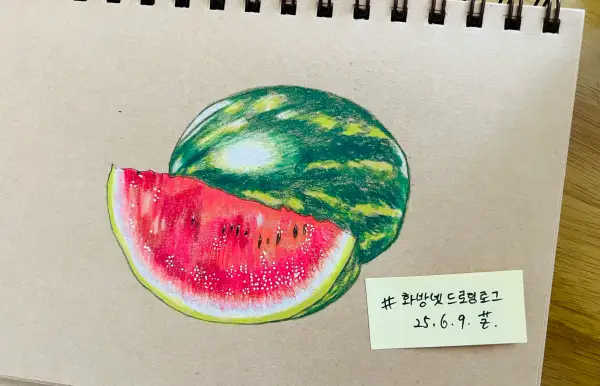 # 화방넷드로잉로그
25.6.9.